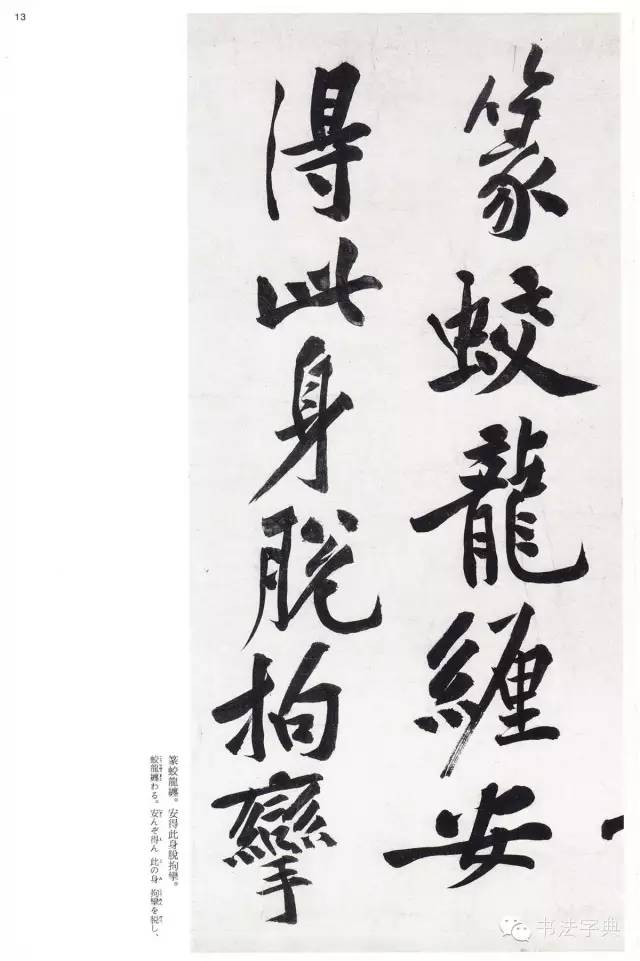 13
篆蛟龍纏安
得此身脫拘攣
篆蛟龍纏。安得此身脫拘攣。
蛟龍纏わる。安んぞ得ん 此の身 拘攣を脱し、
书法字典